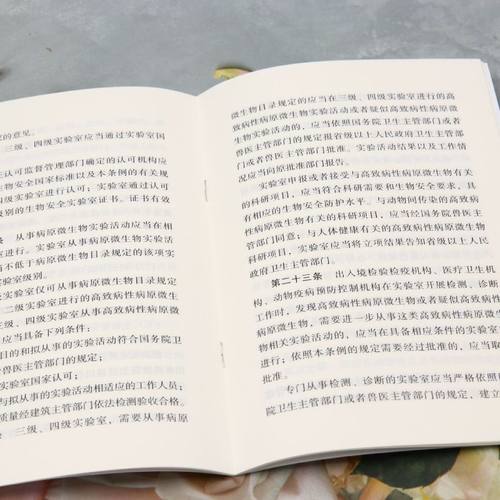 的意见。
三级、四级实验室应当通过实验室国
认可监督管理部门确定的认可机构应
生物安全国家标准以及本条例的有关规
四级实验室进行认可；实验室通过认可
级别的生物安全实验室证书。证书有效
从事病原微生物实验活动应当在相
进行。实验室从事病原微生物实验活
当不低于病原微生物目录规定的该项实
实验室级别。
实验室仅可从事病原微生物目录规定
二级实验室进行的高致病性病原微
三级、四级实验室从事高致病性病原微
应当具备下列条件：
目的和拟从事的实验活动符合国务院卫
管部门的规定；
实验室国家认可；
与拟从事的实验活动相适应的工作人员；
质量经建筑主管部门依法检测验收合格。
三级、四级实验室，需要从事病原
微生物目录规定的应当在三级、四级实验室进行的高
致病性病原微生物实验活动或者疑似高致病性病原微
生物实验活动的，应当依照国务院卫生主管部门或者
兽医主管部门的规定报省级以上人民政府卫生主管部
门或者兽医主管部门批准。实验活动结果以及工作情
况应当向原批准部门报告。
实验室申报或者接受与高致病性病原微生物有关
的科研项目，应当符合科研需要和生物安全要求，具
有相应的生物安全防护水平。与动物间传染的高致病
性病原微生物有关的科研项目，应当经国务院兽医主
管部门同意；与人体健康有关的高致病性病原微生物
科研项目，实验室应当将立项结果告知省级以上人民
政府卫生主管部门。
第二十三条 出入境检验检疫机构、医疗卫生机
构、动物疫病预防控制机构在实验室开展检测、诊断
工作时，发现高致病性病原微生物或者疑似高致病性
病原微生物，需要进一步从事这类高致病性病原微生
物相关实验活动的，应当在具备相应条件的实验室
进行；依照本条例的规定需要经过批准的，应当取
批准。
专门从事检测、诊断的实验室应当严格依照
院卫生主管部门或者兽医主管部门的规定，建立